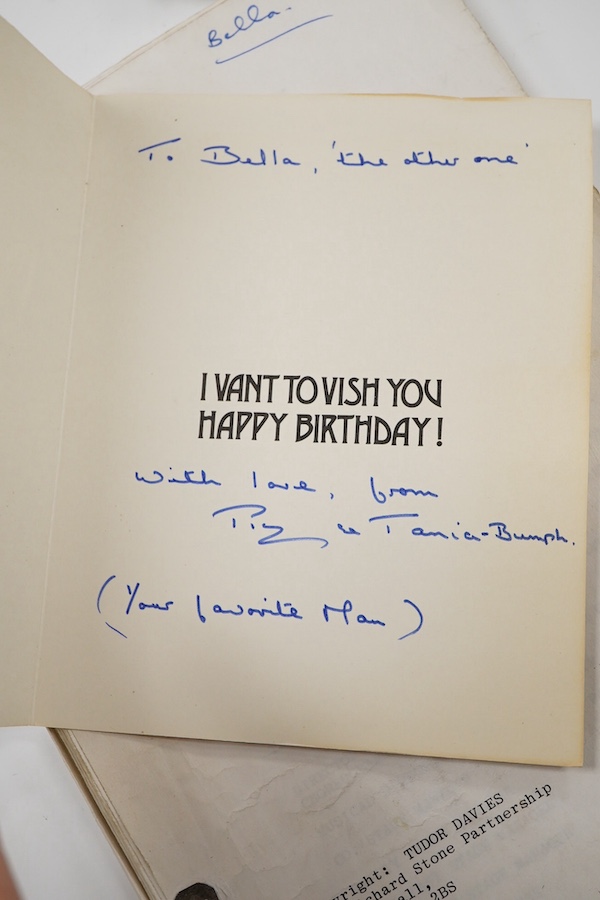 Bella.
To Bella, 'the other one'
I VANT TO VISH YOU
HAPPY BIRTHDAY!
With love, from
Tania-Bumph.
(Your favorite Man)
yright: TUDOR DAVIES
chard Stone Partnership
all,
2BS